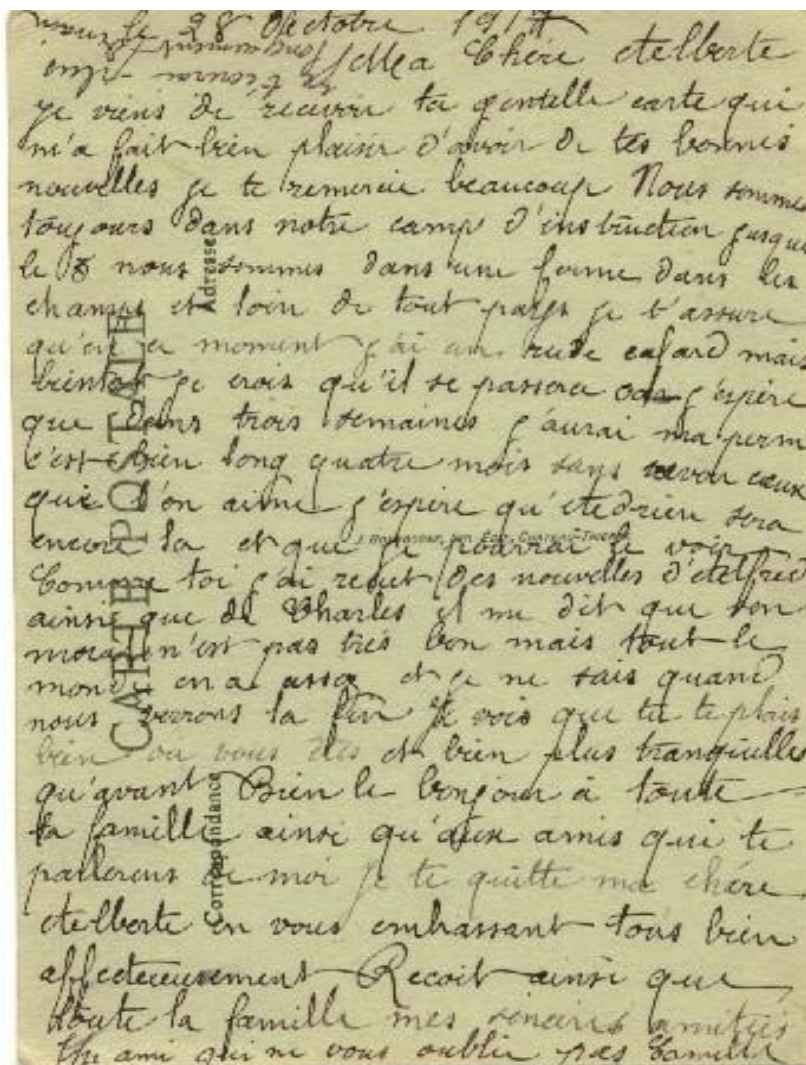 le 28 Octobre 1917
Ma Chère Adelberte
je viens de recevoir ta gentille carte qui
m'a fait bien plaisir d'avoir de tes bonnes
nouvelles je te remercie beaucoup Nous sommes
toujours dans notre camp d'instruction jusque
le 8 nous sommes dans une ferme dans les
champs et loin de tout pays je t'assure
qu'en ce moment j'ai un rude cafard mais
bientot je crois qu'il se passera j'espère
que dans trois semaines j'aurai ma perm
c'est bien long quatre mois sans revoir ceux
que l'on aime j'espère qu'Adrien sera
encore la et que je pourrai le voir
Comme toi j'ai reçut des nouvelles d'Alfred
ainsi que de Charles il me dit que son
moral n'est pas très bon mais tout le
monde en a assez et je ne sais quand
nous verrons la fin Je vois que tu te plais
bien ou vous êtes et bien plus tranquilles
qu'avant Bien le bonjour à toute
ta famille ainsi qu'aux amis qui te
parlerons de moi je te quitte ma chère
Adelberte en vous embrassant tous bien
affectueusement Recoit ainsi que
toute la famille mes sincères amitiés
Un ami qui ne vous oublie pas Camille
CARTE POSTALE
Adresse
Correspondance